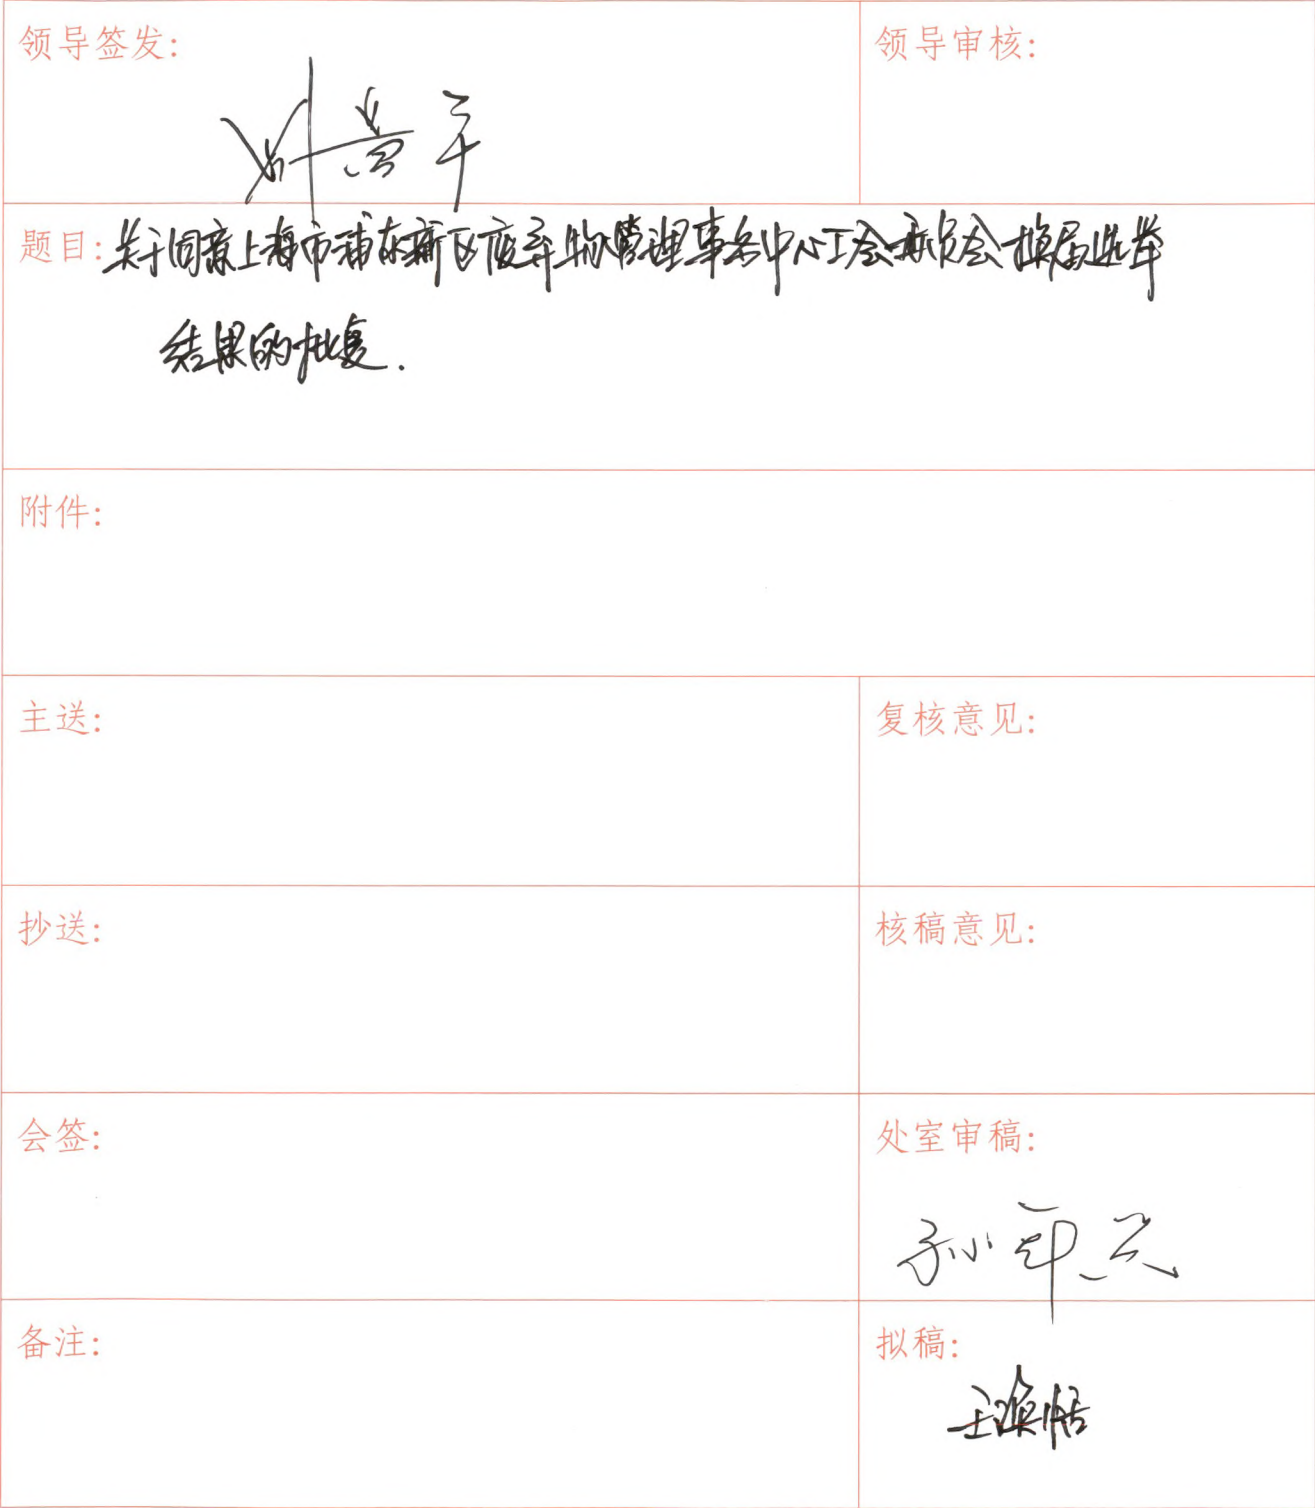 领导签发:
领导审核:
题目:关于同意上海市浦东新区废弃物管理事务中心工会委员会换届选举
结果的批复.
附件:
主送:
复核意见:
抄送:
核稿意见:
会签:
处室审稿:
孙
备注:
拟稿:
王